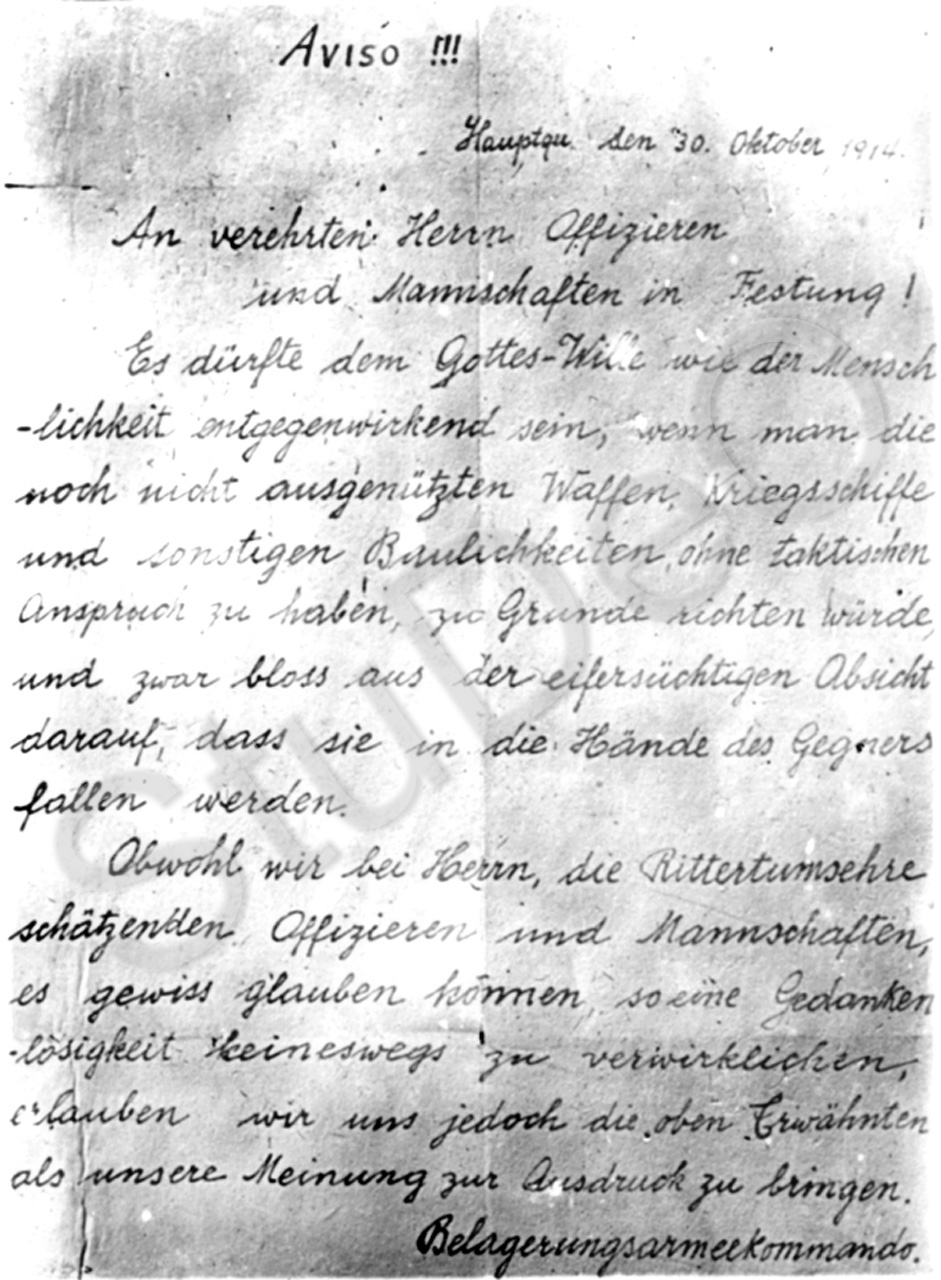 Aviso !!!
Hauptqu. den 30. Oktober 1914.
An verehrten Herrn Offizieren
und Mannschaften in Festung!
Es dürfte dem Gottes-Wille wie der Mensch
-lichkeit entgegenwirkend sein, wenn man die
noch nicht ausgenützten Waffen, Kriegsschiffe
und sonstigen Baulichkeiten, ohne taktischen
Anspruch zu haben, zu Grunde richten würde,
und zwar bloss aus der eifersüchtigen Absicht
darauf, dass sie in die Hände des Gegners
fallen werden.
Obwohl wir bei Herrn, die Rittertumsehre
schätzenden Offizieren und Mannschaften,
es gewiss glauben können, so eine Gedanken
-lösigkeit keineswegs zu verwirklichen,
erlauben wir uns jedoch die oben Erwähnten
als unsere Meinung zur Ausdruck zu bringen.
Belagerungsarmeekommando.
StuDeO